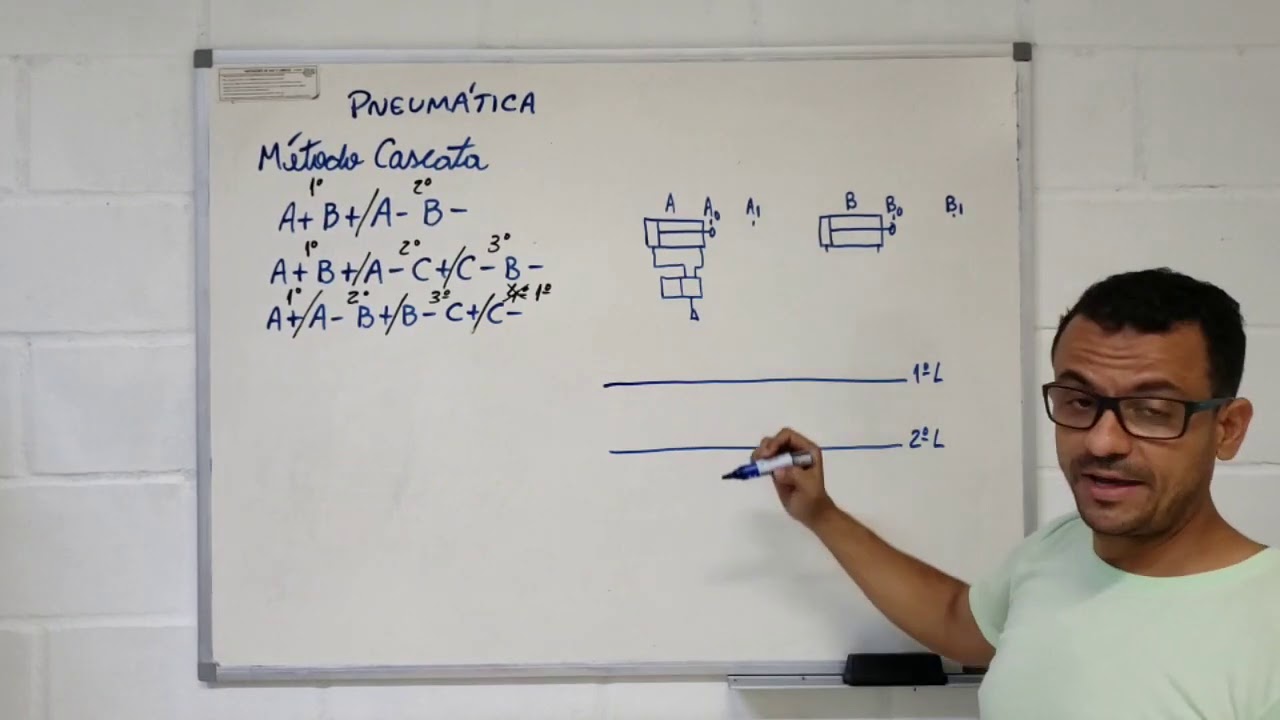 PNEUMÁTICA
Método Cascata
1º 2º
A+B+/A-B-
1º 2º 3º
A+B+/A-C+/C-B-
1º 2º 3º 1º
A+/A-B+/B-C+/C-
A A0 A1 B B0 B1
1ª L
2ª L